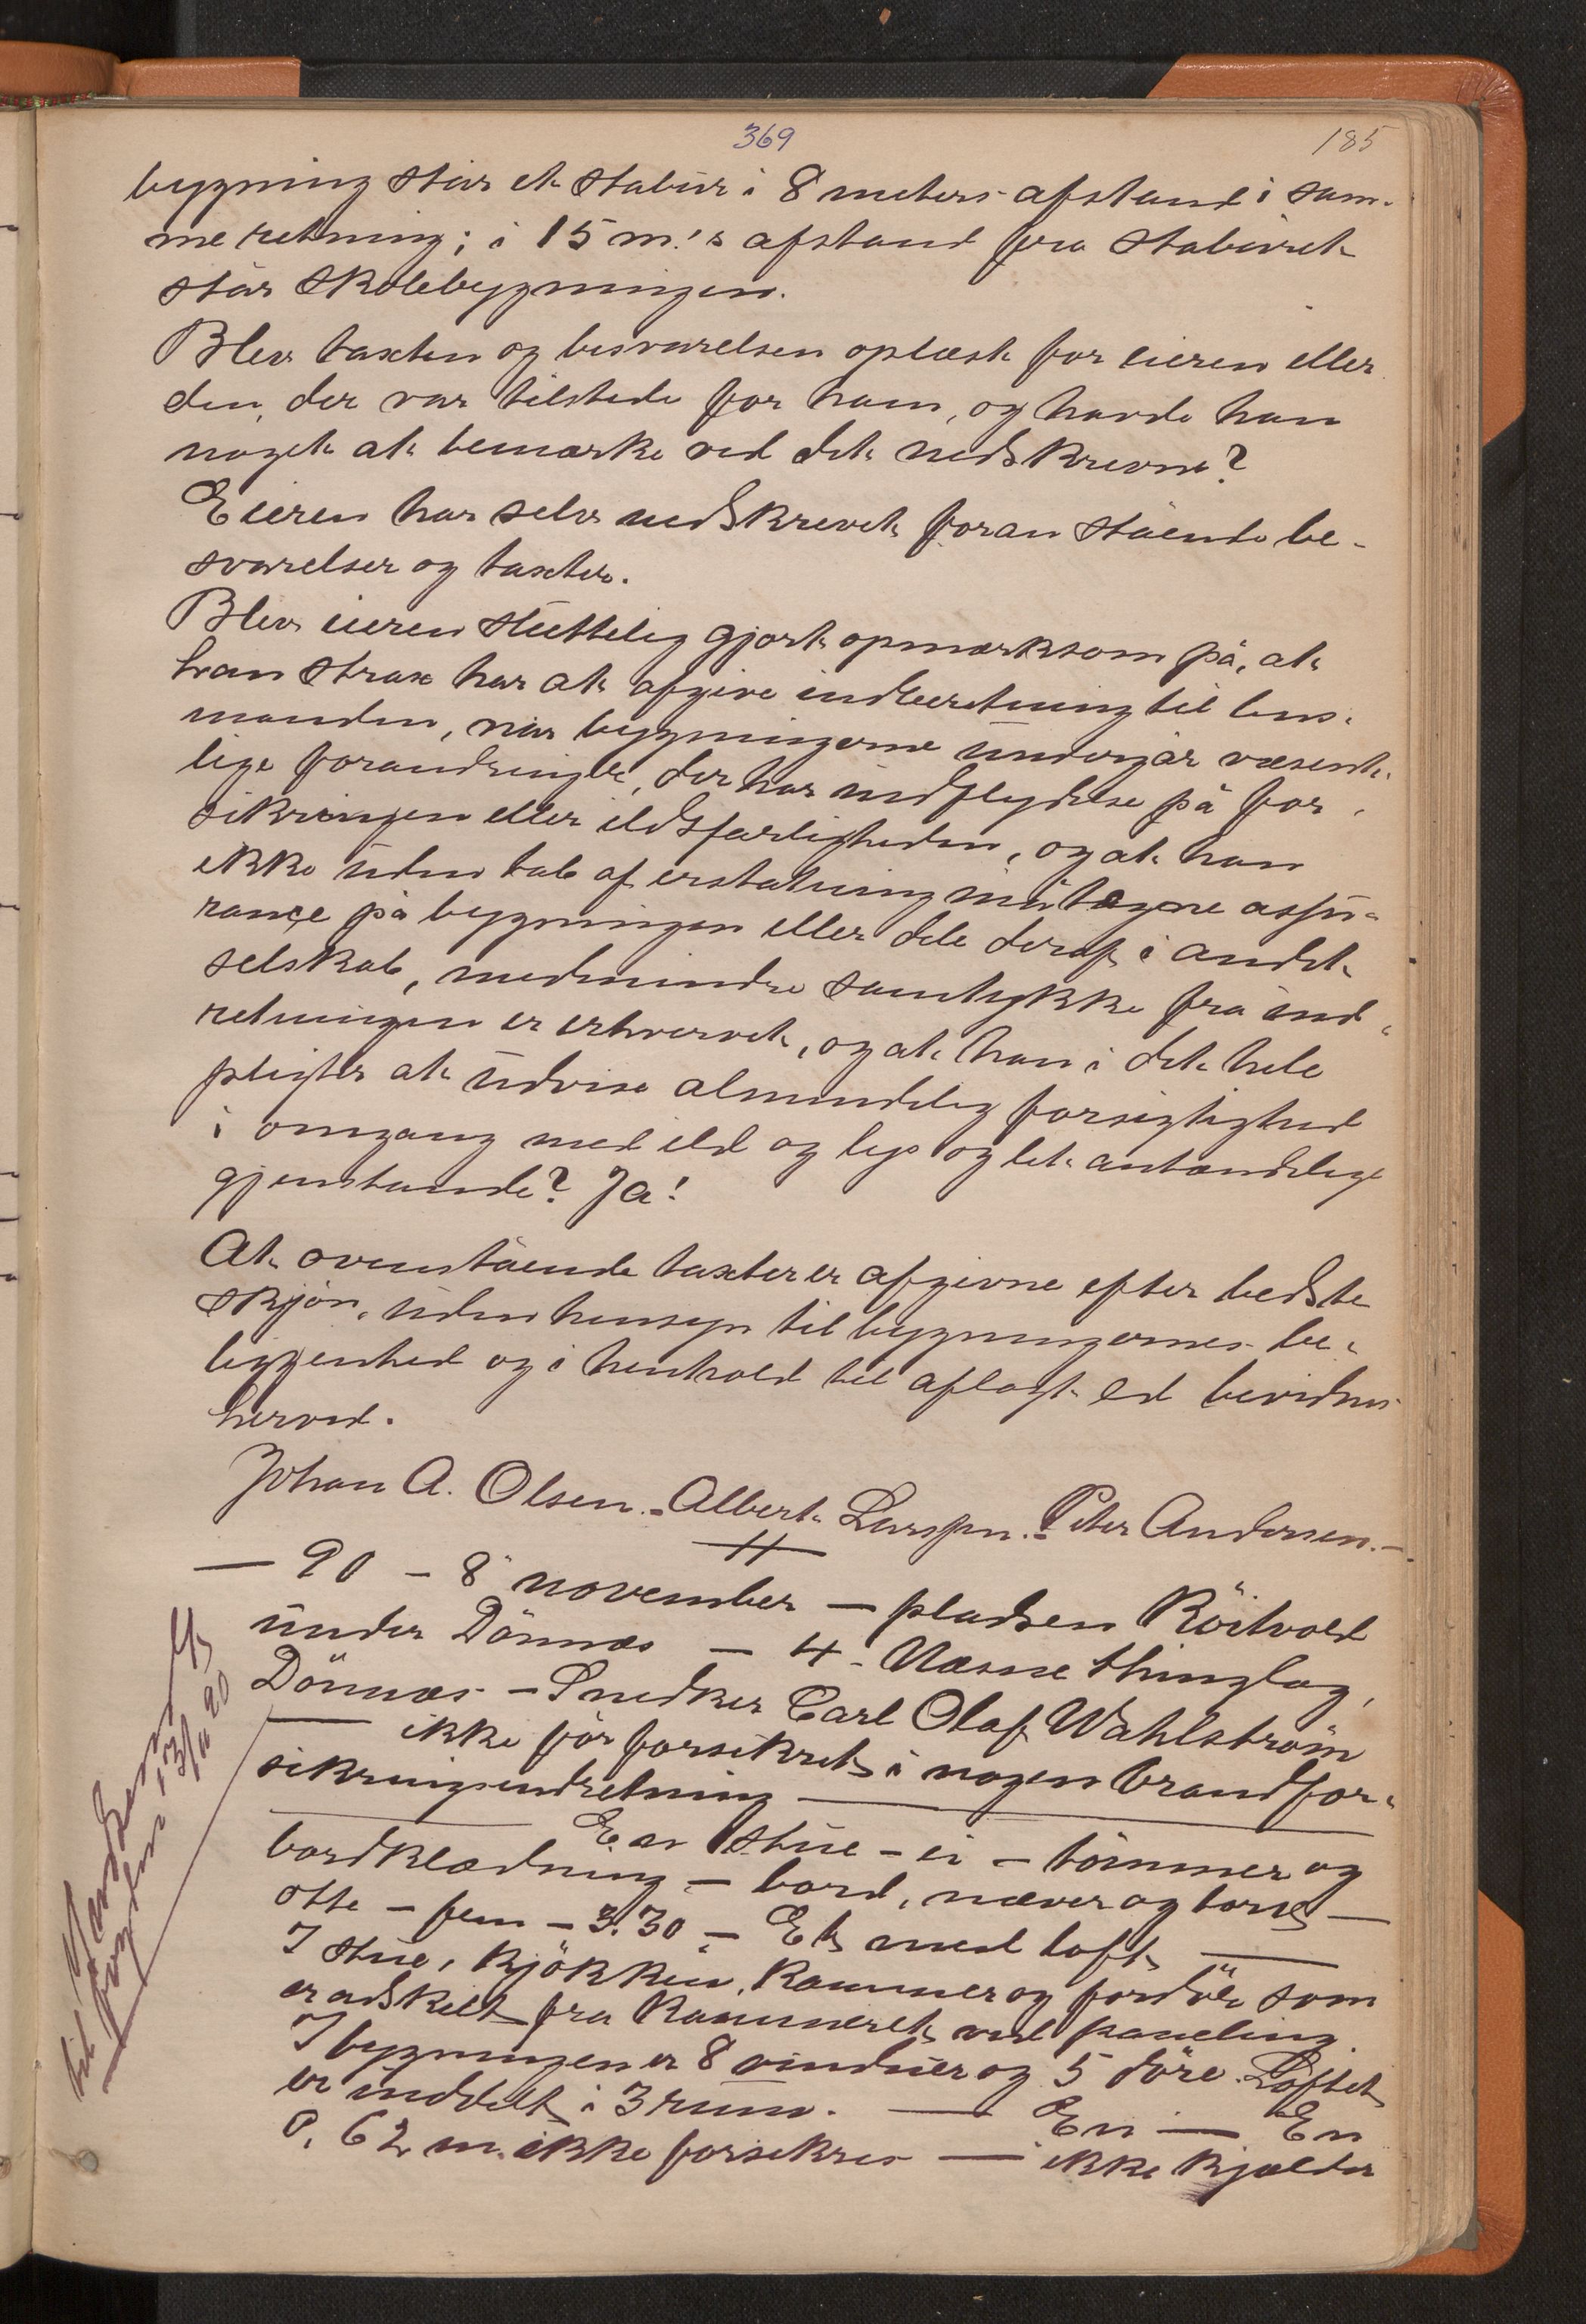 369
185
bygning står et stabur i 8 meters afstand i sam-
me retning; i 15 m.'s afstand fra staburet
står skolebygningen.
Blev taxten og besvarelsen oplæst for eieren eller
den, der var tilstede for ham, og havde han
noget at bemærke ved det nedskrevne?
Eieren har selv nedskrevet foranstående be-
svarelser og taxter.
Blev eieren sluttelig gjort opmærksom på, at
han strax har at afgive indberetning til lens-
manden, når bygningerne undergår væsent-
lige forandringer, der har indflydelse på for-
sikringen eller ildsfarligheden, og at han
ikke uden tab af erstatning må tegne assu-
rance på bygningen eller dele deraf i andet
selskab, medmindre samtykke fra ind-
retningen er erhvervet, og at han i det hele
pligter at udvise almindelig forsigtighed
i omgang med ild og lys og let antændelige
gjenstande? Ja!
At ovenstående taxter er afgivne efter bedste
skjøn, uden hensyn til bygningernes be-
liggenhed og i henhold til aflagt ed bevidnes
herved.
Johan A. Olsen. - Albert Larssen. - Peter Andersen. -
— 90 - 8 november — pladsen Röitvold
under Dönnes — 4 - Næsne thinglag,
Dönnæs - Snedker Carl Olaf Wahlström
— ikke för forsikret i nogen brandfor-
sikringsindretning —
Een stue - ei - tömmer og
bordklædning - bord, næver og torv —
otte - fem - 3.30 - Et med loft —
I stue, kjökken, kammer og fordör som
er adskilt fra kammeret ved paneling
I bygningen er 8 vinduer og 5 döre. Loftet
er inddelt i 3 rum. — En — En
0.62 m. ikke forsikres — ikke kjælder
til
fogden 13/11 90